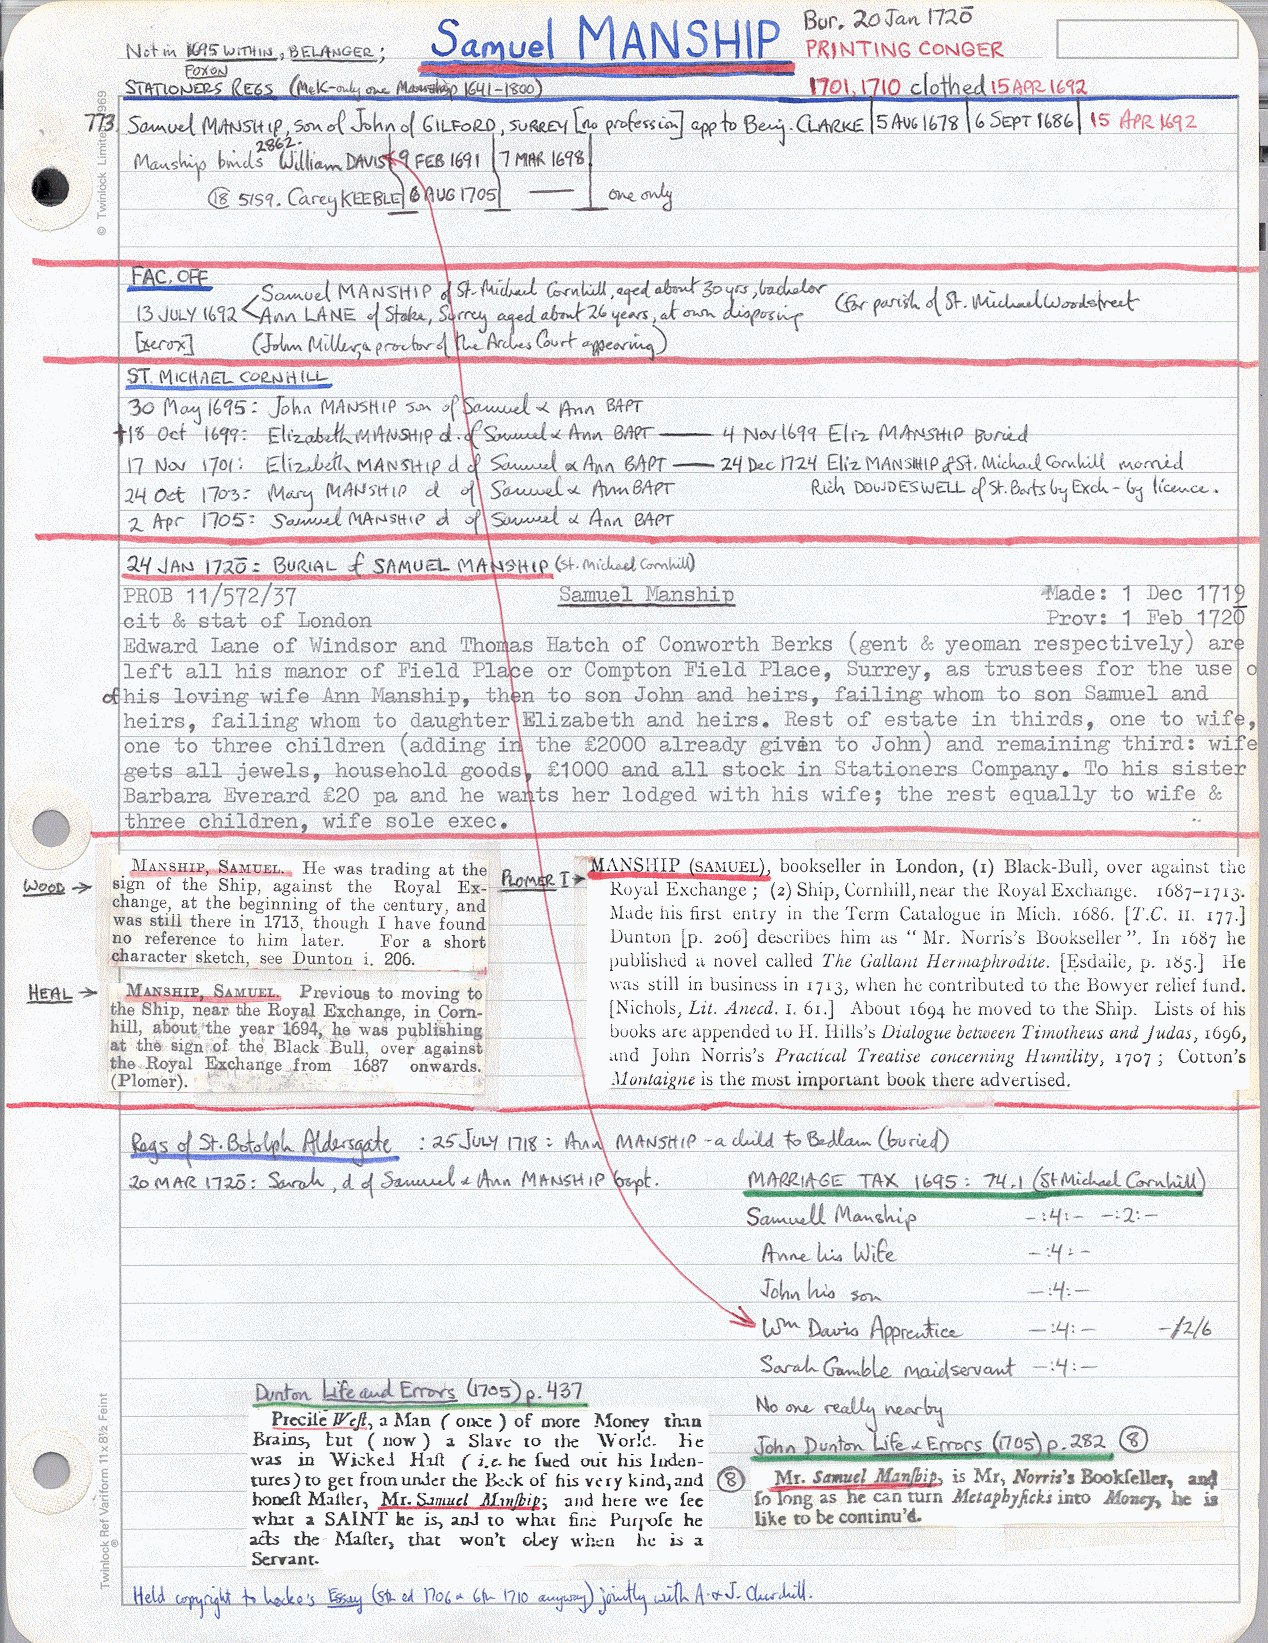 Samuel MANSHIP
Bur. 20 Jan 1720
Not in 1695 WITHIN, BELANGER;
PRINTING CONGER
FOXON
STATIONERS REGS (McK-only one Manship 1641-1800)
1701, 1710 clothed 15 APR 1692
773. Samuel MANSHIP, son of John of GILFORD, SURREY [no profession] app to Benj. CLARKE 5 AUG 1678 6 SEPT 1686 15 APR 1692
2862.
Manship binds William DAVIS 9 FEB 1691 7 MAR 1698
⑱ 5159. Carey KEEBLE 6 AUG 1705 — one only
FAC. OFF
Samuel MANSHIP of St. Michael Cornhill, aged about 30 yrs, bachelor
13 JULY 1692 Ann LANE of Stoke, Surrey aged about 26 years, at own disposing (for parish of St. Michael Woodstreet
[xerox] (John Miller, a proctor of the Arches Court appearing)
ST. MICHAEL CORNHILL
30 May 1695: John MANSHIP son of Samuel & Ann BAPT
†18 Oct 1699: Elizabeth MANSHIP d. of Samuel & Ann BAPT — 4 Nov 1699 Eliz MANSHIP Buried
17 Nov 1701: Elizabeth MANSHIP d of Samuel & Ann BAPT — 24 Dec 1724 Eliz MANSHIP of St. Michael Cornhill married
24 Oct 1703: Mary MANSHIP d of Samuel & Ann BAPT Rich DOWDESWELL of St. Barts by Exch - by licence.
2 Apr 1705: Samuel MANSHIP d of Samuel & Ann BAPT
24 JAN 1720: BURIAL of SAMUEL MANSHIP (St. Michael Cornhill)
PROB 11/572/37 Samuel Manship Made: 1 Dec 1719
cit & stat of London Prov: 1 Feb 1720
Edward Lane of Windsor and Thomas Hatch of Conworth Berks (gent & yeoman respectively) are
left all his manor of Field Place or Compton Field Place, Surrey, as trustees for the use o
of his loving wife Ann Manship, then to son John and heirs, failing whom to son Samuel and
heirs, failing whom to daughter Elizabeth and heirs. Rest of estate in thirds, one to wife,
one to three children (adding in the £2000 already given to John) and remaining third: wife
gets all jewels, household goods, £1000 and all stock in Stationers Company. To his sister
Barbara Everard £20 pa and he wants her lodged with his wife; the rest equally to wife &
three children, wife sole exec.
WOOD →
MANSHIP, SAMUEL. He was trading at the
sign of the Ship, against the Royal Ex-
change, at the beginning of the century, and
was still there in 1713, though I have found
no reference to him later. For a short
character sketch, see Dunton i. 206.
HEAL →
MANSHIP, SAMUEL. Previous to moving to
the Ship, near the Royal Exchange, in Corn-
hill, about the year 1694, he was publishing
at the sign of the Black Bull, over against
the Royal Exchange from 1687 onwards.
(Plomer).
PLOMER I →
MANSHIP (SAMUEL), bookseller in London, (1) Black-Bull, over against the
Royal Exchange; (2) Ship, Cornhill, near the Royal Exchange. 1687-1713.
Made his first entry in the Term Catalogue in Mich. 1686. [T.C. II. 177.]
Dunton [p. 206] describes him as "Mr. Norris's Bookseller". In 1687 he
published a novel called The Gallant Hermaphrodite. [Esdaile, p. 185.] He
was still in business in 1713, when he contributed to the Bowyer relief fund.
[Nichols, Lit. Anecd. I. 61.] About 1694 he moved to the Ship. Lists of his
books are appended to H. Hills's Dialogue between Timotheus and Judas, 1696,
and John Norris's Practical Treatise concerning Humility, 1707; Cotton's
Montaigne is the most important book there advertised.
Regs of St. Botolph Aldersgate : 25 JULY 1718: Ann MANSHIP - a child to Bedlam (buried)
20 MAR 1720: Sarah, d of Samuel & Ann MANSHIP bapt.
MARRIAGE TAX 1695: 74.1 (St Michael Cornhill)
Samuell Manship -:4:- -:2:-
Anne his Wife -:4:-
John his son -:4:-
Wm Davis Apprentice -:4:- -/2/6
Sarah Gamble maidservant -:4:-
No one really nearby
Dunton Life and Errors (1705) p. 437
Precise West, a Man ( once ) of more Money than
Brains, but ( now ) a Slave to the World. He
was in Wicked Hast ( i.e. he sued out his Inden-
tures) to get from under the Beck of his very kind, and
honest Master, Mr. Samuel Manship; and here we see
what a SAINT he is, and to what fine Purpose he
acts the Master, that won't obey when he is a
Servant.
John Dunton Life & Errors (1705) p. 282 ⑧
⑧ Mr. Samuel Manship, is Mr, Norris's Bookseller, and
so long as he can turn Metaphysicks into Money, he is
like to be continu'd.
Held copyright to Locke's Essay (5th ed 1706 & 6th 1710 anyway) jointly with A. & J. Churchill.
© Twinlock Limited 1969
Twinlock Ref Variform 11 x 8½ Feint